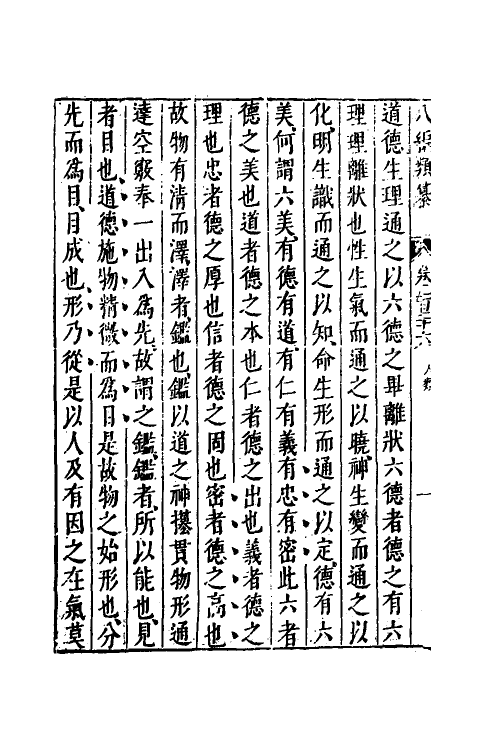 八編類纂 卷一百三十六 人類 一
道德生理通之以六德之畢離狀六德者德之有六
理理離狀也性生氣而通之以曉神生變而通之以
化明生識而通之以知命生形而通之以定德有六
美何謂六美有德有道有仁有義有忠有密此六者
德之美也道者德之本也仁者德之出也義者德之
理也忠者德之厚也信者德之固也密者德之高也
故物有清而澤澤者鑑也鑑以道之神攓貫物形通
達空竅奉一出入為先故謂之鑑鑑者所以能也見
者目也道德施物精微而為目是故物之始形也分
先而為目目成也形乃從是以人及有因之在氣莫